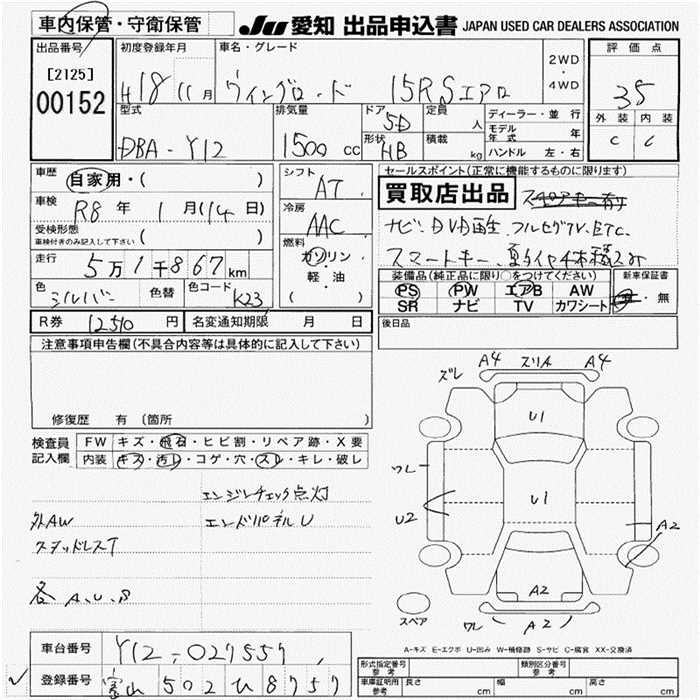 車内保管・守衛保管
JU 愛知 出品申込書 JAPAN USED CAR DEALERS ASSOCIATION
出品番号
[2125]
00152
初度登録年月
H18 11月
車名・グレード
ウィングロード 15RSエアロ
2WD
・
4WD
評価点
35
外装 内装
C C
型式
DBA-Y12
排気量
1500cc
ドア
5D
形状
HB
定員
人
積載
kg
ディーラー・並行
モデル年式 年
ハンドル 左・右
車歴
自家用・( )
車検
R8年 1月(14日)
受検形態
車検付きのみ記入して下さい ( )
走行
5万1千867km
色
シルバー
色替
色コード
K23
シフト
AT
冷房
AAC
燃料
ガソリン
・
軽・油
( )
セールスポイント(正常に機能するものに限ります)
買取店出品
ナビ.DVD再生.フルセグTV.ETC.
スマートキー.夏タイヤ4本積込み
装備品(純正品に限り○をつけてください)
PS PW エアB AW
SR ナビ TV カワシート
新車保証書
有・無
R券 12510円
名変通知期限 月 日
後日品
注意事項申告欄(不具合内容等は具体的に記入して下さい)
修復歴 有 (箇所 )
検査員記入欄
FW キズ・飛石・ヒビ割・リペア跡・X要
内装 キズ・汚レ・コゲ・穴・スレ・キレ・破レ
エンジンチェック点灯
外AW エンドパネルU
スタッドレスT
各A.U.B
ズレ A4 スリA A4
U1
ワレ
U2
U1
A2
A2
スペア
ワレ A2
A-キズ E-エクボ U-凹み W-補修跡 S-サビ C-腐食 XX-交換済
車台番号
Y12-027557
登録番号
富山 502 ひ 8757
形式指定番号
参考
類別区分番号
参考
車庫証明用
参考
長さ cm 幅 cm 高さ cm